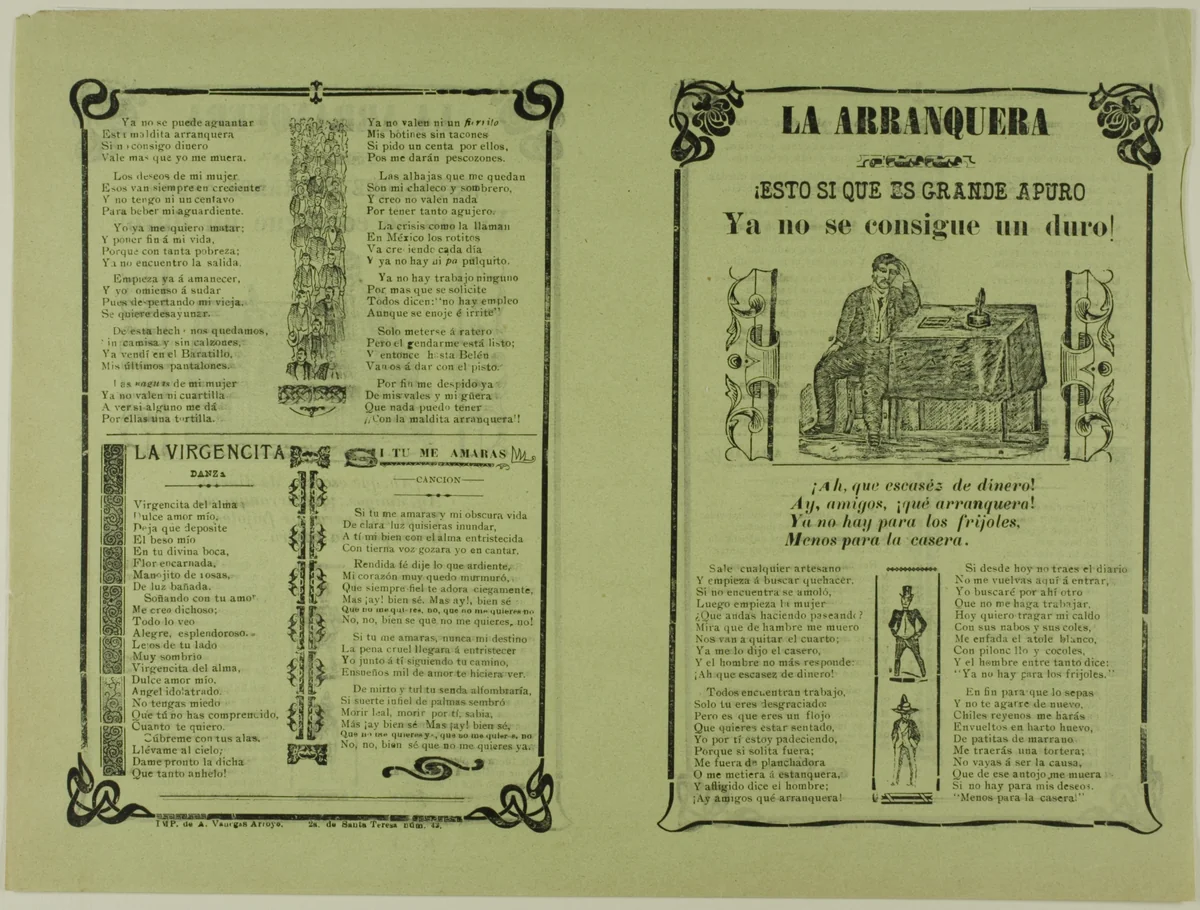 Ya no se puede aguantar
Esta maldita arranquera
Si no consigo dinero
Vale mas que yo me muera.
Los deseos de mi mujer
Esos van siempre en creciente
Y no tengo ni un centavo
Para beber mi aguardiente.
Yo ya me quiero matar;
Y poner fin á mi vida,
Porque con tanta pobreza;
Ya no encuentro la salida.
Empieza ya á amanecer,
Y yo comienso á sudar
Pues despertando mi vieja.
Se quiere desayunar.
De esta hecha nos quedamos,
Sin camisa y sin calzones,
Ya vendí en el Baratillo,
Mis últimos pantalones.
Las naguas de mi mujer
Ya no valen ni cuartilla
A ver si alguno me dá
Por ellas una tortilla.
Ya no valen ni un
Mis botines sin tacones
Si pido un centa por ellos,
Pos me darán pescozones.
Las alhajas que me quedan
Son mi chaleco y sombrero,
Y creo no valen nada
Por tener tanto agujero.
La crisis como la llaman
En México los rotitos
Va creciende cada día
Y ya no hay ni pa pulquito.
Ya no hay trabajo ninguno
Por mas que se solicite
Todos dicen: "no hay empleo
Aunque se enoje é irrite"
Solo meterse á ratero
Pero el gendarme está listo;
Y entonce hasta Belén
Vamos á dar con el pisto.
Por fin me despido ya
De mis vales y mi güera
Que nada puedo tener
¡¡Con la maldita arranquera"!
LA VIRGENCITA
DANZA
Virgencita del alma
Dulce amor mío,
Deja que deposite
El beso mío
En tu divina boca,
Flor encarnada,
Manojito de rosas,
De luz bañada.
Soñando con tu amor
Me creo dichoso;
Todo lo veo
Alegre, esplendoroso.
Lejos de tu lado
Muy sombrío
Virgencita del alma,
Dulce amor mío.
Angel idolatrado.
No tengas miedo
Que tú no has comprendido,
Cuanto te quiero.
Cúbreme con tus alas.
Llévame al cielo;
Dame pronto la dicha
Que tanto anhelo!
SI TU ME AMARAS
CANCION
Si tu me amaras y mi obscura vida
De clara luz quisieras inundar,
A tí mi bien con el alma entristecida
Con tierna voz gozara yo en cantar.
Rendida té dije lo que ardiente,
Mi corazón muy quedo murmuró,
Que siempre fiel te adora ciegamente,
Mas ¡ay! bien sé. Mas ay!, bien sé
Que no me quieres, no, que no me quieres no
No, no, bien se que no me quieres, no!
Si tu me amaras, nunca mi destino
La pena cruel llegara á entristecer
Yo junto á tí siguiendo tu camino,
Ensueños mil de amor te hiciera ver.
De mirto y tul tu senda alfombraría,
Si suerte infiel de palmas sembró
Morir leal, morir por tí, sabia,
Más ¡ay bien sé Mas ¡ay! bien sé,
Que no me quieres ya, que no me quieres, no
No, no, bien sé que no me quieres ya.
IMP. de A. Vanegas Arroyo. 2a. de Santa Teresa núm. 43.
LA ARRANQUERA
¡ESTO SI QUE ES GRANDE APURO
Ya no se consigue un duro!
¡Ah, que escaséz de dinero!
Ay, amigos, ¡qué arranquera!
Ya no hay para los frijoles,
Menos para la casera.
Sale cualquier artesano
Y empieza á buscar quehacer.
Si no encuentra se amoló,
Luego empieza la mujer
¿Que andas haciendo paseando?
Mira que de hambre me muero
Nos van a quitar el cuarto;
Ya me lo dijo el casero,
Y el hombre no más responde:
¡Ah que escasez de dinero!
Todos encuentran trabajo,
Solo tu eres desgraciado:
Pero es que eres un flojo
Que quieres estar sentado,
Yo por tí estoy padeciendo,
Porque si solita fuera;
Me fuera de planchadora
O me metiera á estanquera,
Y afligido dice el hombre;
¡Ay amigos qué arranquera!
Si desde hoy no traes el diario
No me vuelvas aquí á entrar,
Yo buscaré por ahí otro
Que no me haga trabajar,
Hoy quiero tragar mi caldo
Con sus nabos y sus coles,
Me enfada el atole blanco,
Con piloncillo y cocoles,
Y el hombre entre tanto dice:
"Ya no hay para los frijoles."
En fin para que lo sepas
Y no te agarre de nuevo,
Chiles reyenos me harás
Envueltos en harto huevo,
De patitas de marrano
Me traerás una tortera;
No vayas á ser la causa,
Que de ese antojo me muera
Si no hay para mis deseos.
"Menos para la casera!"